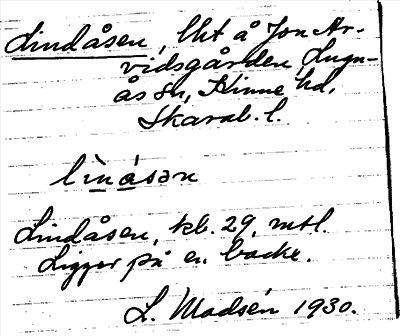 Lindåsen, lht å Jon Ar-
vidsgården, Lugn-
ås sn, Kinne hd,
Skarab. l.
lìnásan
Lindåsen, kb. 29, mtl.
Ligger på en backe.
L. Modsén 1930.